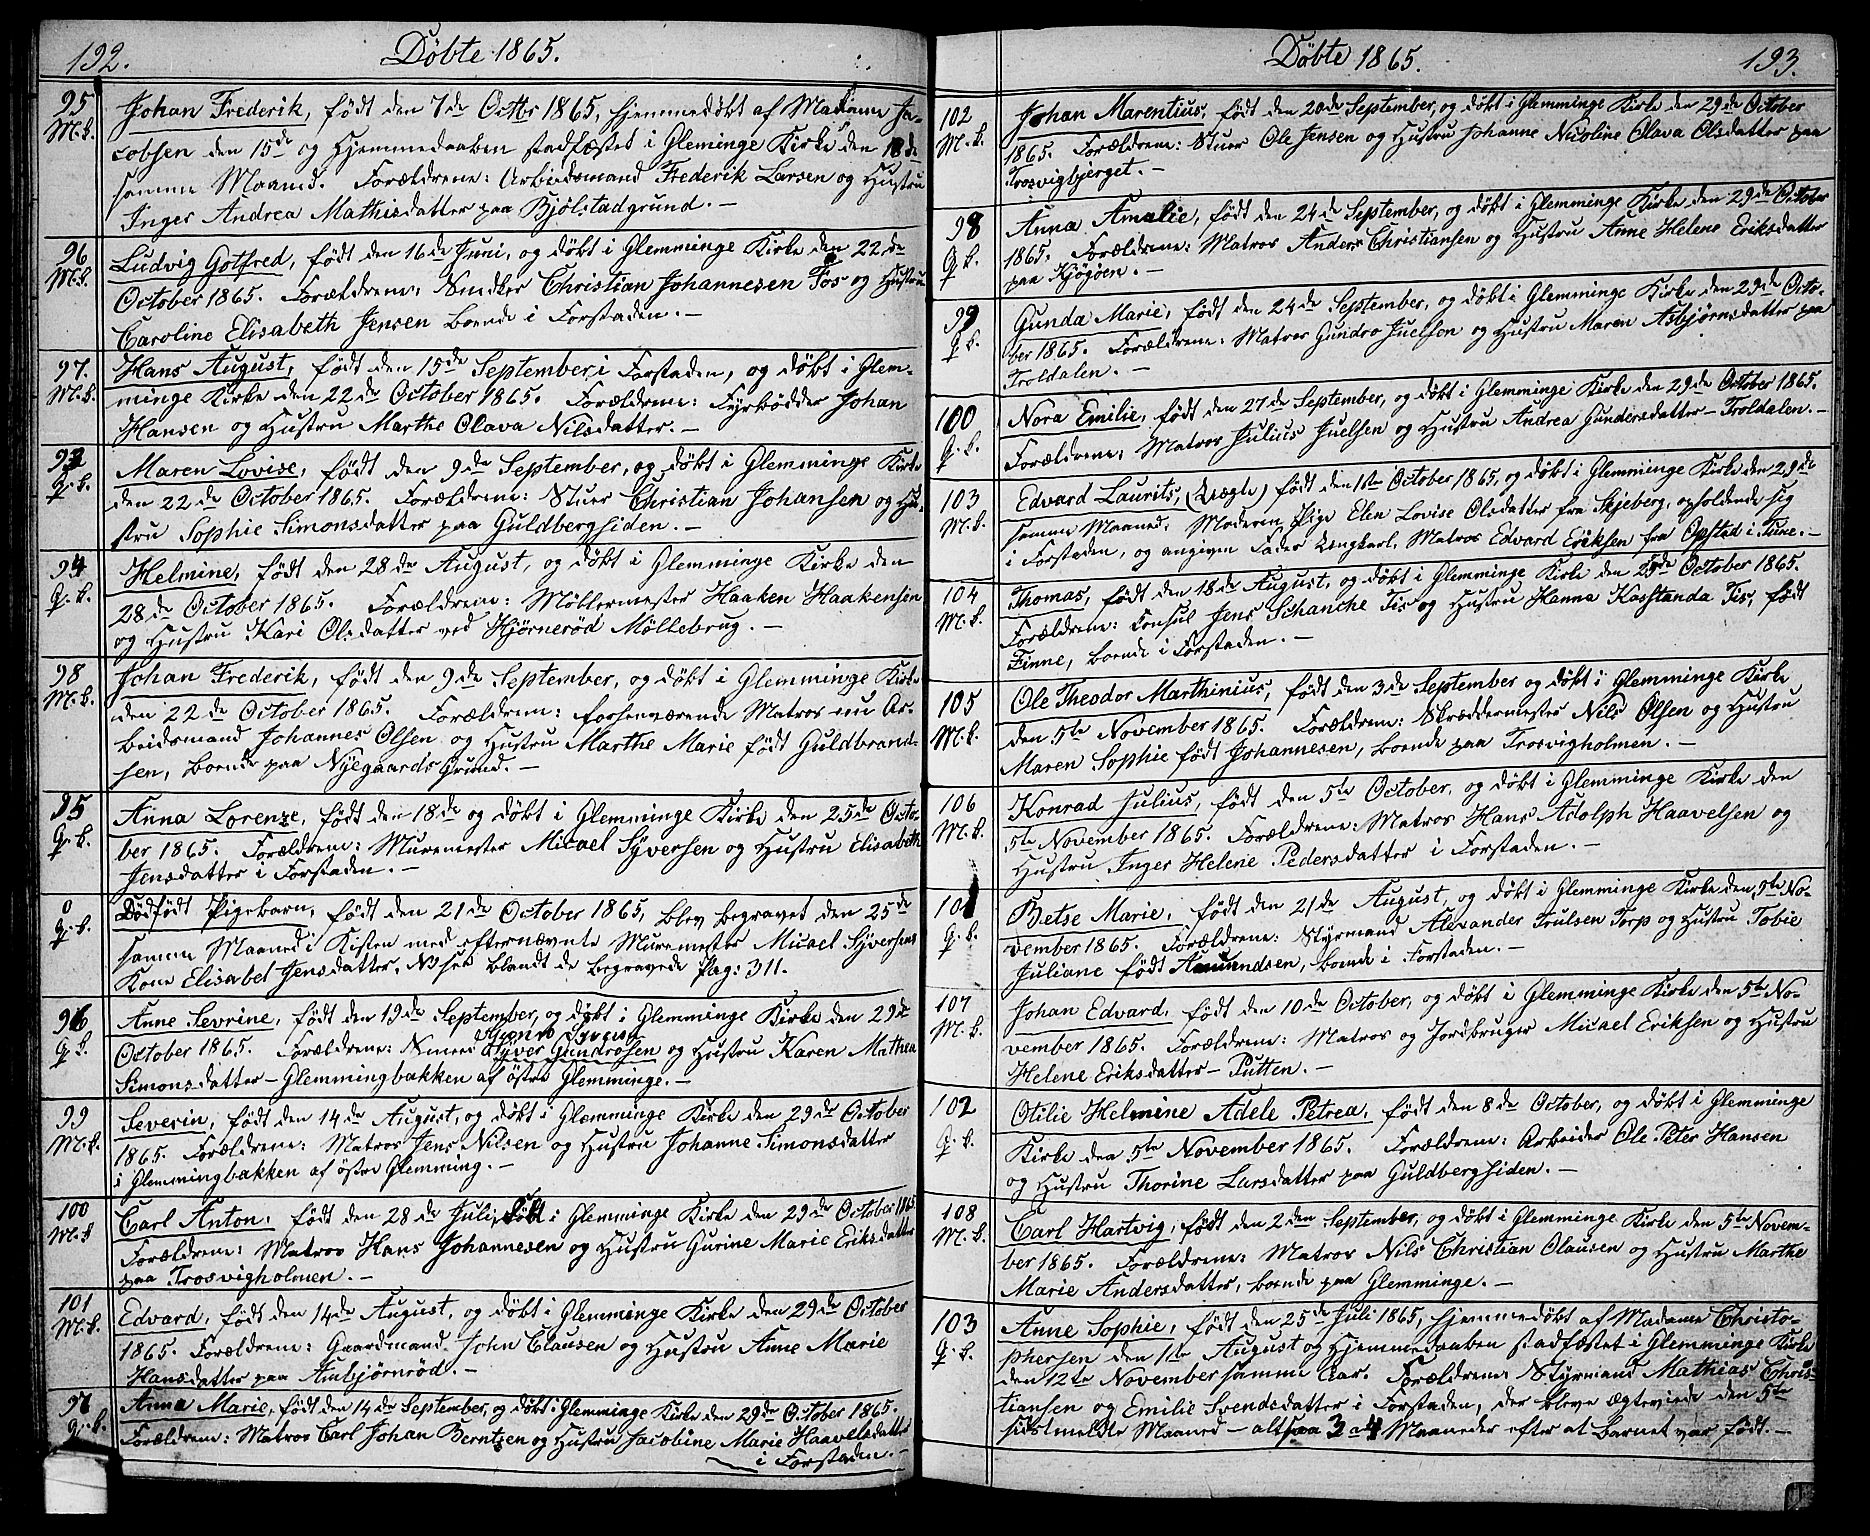 192.
Døbte 1865.
95
M.k.
Johan Frederik, født den 7de Octbr 1865, hjemmedøbt af Madame Ja-
cobsen den 15de og Hjemmedaaben stadfæstet i Gleminge Kirke den 18de
samme Maaned. Forældrene: Arbeidsmand Frederik Larsen og Hustru
Inger Andrea Mathisdatter paa Bjølstadgrund.-
96
M.k.
Ludvig Gotfred, født den 16de Juni, og døbt i Glemminge Kirke den 22de
October 1865. Forældrene: Snedker Christian Johannesen Fos og Hustru
Caroline Elisabeth Jensen boende i Forstaden.-
97.
M.k.
Hans August, født den 15de September i Forstaden, og døbt i Glem-
minge Kirke den 22de October 1865. Forældrene: Fyrbødder Johan
Hansen og Hustru Marthe Olava Nilsdatter.-
93
P.k.
Maren Lovise, født den 9de September, og døbt i Glemminge Kirke
den 22de October 1865. Forældrene: Stuer Christian Johansen og Hu-
stru Sophie Simonsdatter paa Guldbergsiden.-
94
P.k.
Helmine, født den 28de August, og døbt i Glemminge Kirke den
28de October 1865. Forældrene: Møllermester Haaken Haakensen
og Hustru Kari Olsdatter ved Hjørnerød Møllebrug.-
98
M.k.
Johan Frederik, født den 9de September, og døbt i Glemminge Kirke
den 22de October 1865. Forældrene: forhenværende Matros nu Ar-
beidsmand Johannes Olsen og Hustru Marthe Marie født Guldbrand-
sen, boende paa Nyegaards Grund.-
95
P.k.
Anna Lorenze, født den 18de og døbt i Glemminge Kirke den 25de Octo-
ber 1865. Forældrene: Muremester Micael Syversen og Hustru Elisabeth
Jensdatter i Forstaden.-
0
P.k.
Dødfødt Pigebarn, født den 21de October 1865, blev begravet den 25de
samme Maaned i Kisten med efternævnte Muremester Micael Syversens
Kone Elisabet Jensdatter, No see blandt de begravede Pag: 311.
96
P.k.
Anne Sevrine, født den 19de September, og døbt i Glemminge Kirke den 29de
October 1865. Forældrene: Syver Gundrosen og Hustru Karen Mathea
Simonsdatter - Glemmingbakken af østre Glemminge.-
99
M.k.
Severin, født den 14de August, og døbt i Glemminge Kirke den 29de October
1865. Forældrene: Matros Jens Nilsen og Hustru Johanne Simonsdatter
i Glemmingbakken af østre Glemming.-
100
M.k
Carl Anton, født den 28de Juli, døbt i Glemminge Kirke den 29de October 1865
Forældrene: Matros Hans Johannesen og Hustru Gurine Marie Eriksdatter
paa Trosvigholmen.-
101
M.k.
Edvard, født den 14de August, og døbt i Glemminge Kirke den 29de October
1865. Forældrene: Gaardmand John Clausen og Hustru Anne Marie
Hansdatter paa Ambjørnrød.-
97
P.k.
Anna Marie, født den 14de September, og døbt i Glemminge Kirke den 29de October 1865.
Forældrene: Matros Carl Johan Berntzen og Hustru Jacobine Marie Haavelsdatter
i Forstaden.-
Døbte 1865.
193.
102
M.k.
Johan Marentius, født den 20de September, og døbt i Glemminge Kirke den 29de October
1865. Forældrene: Stuer Ole Jensen og Hustru Johanne Nicoline Olava Olsdatter paa
Trosvigbjerget.-
98
P.k.
Anna Amalie, født den 24de September, og døbt i Glemminge Kirke den 29de October
1865. Forældrene: Matros Anders Christiansen og Hustru Anne Helene Eriksdatter
paa Kjøgøen.-
99
P.k.
Gunda Marie, født den 24de September, og døbt i Glemminge Kirke den 29de Octo-
ber 1865. Forældrene: Matros Gundro Juelsen og Hustru Maren Asbjørnsdatter paa
Troldalen.-
100
P.k.
Nora Emilie, født den 27de September, og døbt i Glemminge Kirke den 29de October 1865.
Forældrene: Matros Julius Juelsen og Hustru Andrea Gundersdatter - Troldalen.-
103
M.k.
Edvard Laurits, (Uægte) født den 1ste October 1865, og døbt i Glemminge Kirke den 29de
samme Maaned. Moderen Pige Elen Lovise Olsdatter fra Skjeberg, opholdende sig
i Forstaden, og angiven Fader Ungkarl, Matros Edvard Eriksen fra Opstad i Tune.-
104
M.k.
Thomas, født den 18de August, og døbt i Glemminge Kirke den 25de October 1865.
Forældrene: Consul Jens Schanche Tis og Hustru Hanna Tis, født
Finne, boende i Forstaden.-
105
M.k.
Ole Theodor Marthinius, født den 3de September og døbt i Glemminge Kirke
den 5te November 1865. Forældrene: Skræddermester Nils Olsen og Hustru
Maren Sophie født Johannesen, boende paa Trosvigholmen.-
106
M.k.
Konrad Julius, født den 5te October, og døbt i Glemminge Kirke den
5te November 1865. Forældrene: Matros Hans Adolph Haavelsen og
Hustru Inger Helene Pedersdatter i Forstaden.-
101
P.k.
Betse Marie, født den 21de August, og døbt i Glemminge Kirke den 5te No-
vember 1865. Forældrene: Styrmand Alexander Trulsen Torp og Hustru Tobie
Juliane født Amundsen, boende i Forstaden.-
107
M.k.
Johan Edvard, født den 10de October, og døbt i Glemminge Kirke den 5te No-
vember 1865. Forældrene: Matros og Jordbruger Micael Eriksen og Hustru
Helene Eriksdatter - Putten.-
102
P.k.
Otilie Helmine Adele Petrea, født den 8de October, og døbt i Glemminge
Kirke den 5te November 1865. Forældrene: Arbeider Ole Peter Hansen
og Hustru Thorine Larsdatter paa Guldbergsiden.-
108
M.k.
Carl Hartvig, født den 2den September, og døbt i Glemminge Kirke den 5te Novem-
ber 1865. Forældrene: Matros Nils Christian Olausen og Hustru Marthe
Marie Andersdatter, boende paa Glemminge.-
103
P.k.
Anne Sophie, født den 25de Juli 1865, hjemmedøbt af Madame Christo-
phersen den 1ste August og Hjemmedaaben stadfæstet i Glemminge Kirke
den 12te November samme Aar. Forældrene Styrmand Mathias Chris-
tiansen og Emilie Svendsdatter i Forstaden, der bleve ægteviede den 5te
sidstmeldte Maaned - altsaa 3 a 4 Maaneder efter at Barnet var født.-